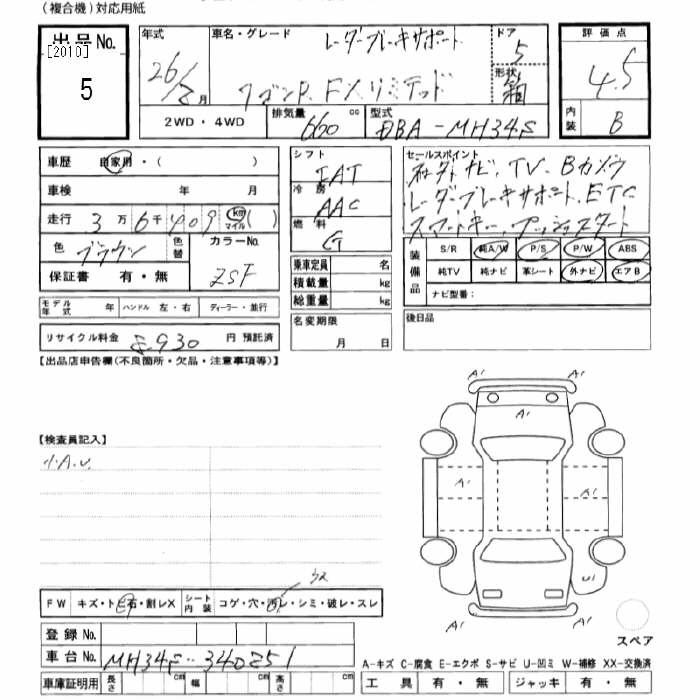 (複合機)対応用紙
出品No.
[2010]
5
年式 26/ 月
車名・グレード レーダーブレーキサポート
ワゴンR FXリミテッド
ドア 5
形状 箱
評価点 4.5
内装 B
2WD・4WD
排気量 660 cc
型式 DBA-MH34S
車歴 自家用・( )
車検 年 月
走行 3万6千409 km マイル ( )
色 ブラウン 色替
カラーNo. ZSF
保証書 有・無
モデル年式 年 ハンドル 左・右 ディーラー・並行
リサイクル料金 8,930 円 預託済
シフト IAT
冷房 AAC
燃料 G
乗車定員 名
積載量 kg
総重量 kg
名変期限
月 日
セールスポイント
社外ナビ、TV、Bカメラ
レーダーブレーキサポート、ETC
スマートキー、プッシュスタート
装備品
S/R 純A/W P/S P/W ABS
純TV 純ナビ 革シート 外ナビ エアB
ナビ型番:
後日品
【出品店申告欄(不良箇所・欠品・注意事項等)】
【検査員記入】
A1 A1
A1
A1 A1
U1
A1 A1
スペア
FW キズ・トビ石・割レX シート内装 コゲ・穴・汚レ・シミ・破レ・スレ
登録No.
車台No. MH34S-340851
車庫証明用 長さ cm 幅 cm 高さ cm
A-キズ C-腐食 E-エクボ S-サビ U-凹ミ W-補修 XX-交換済
工具 有・無 ジャッキ 有・無